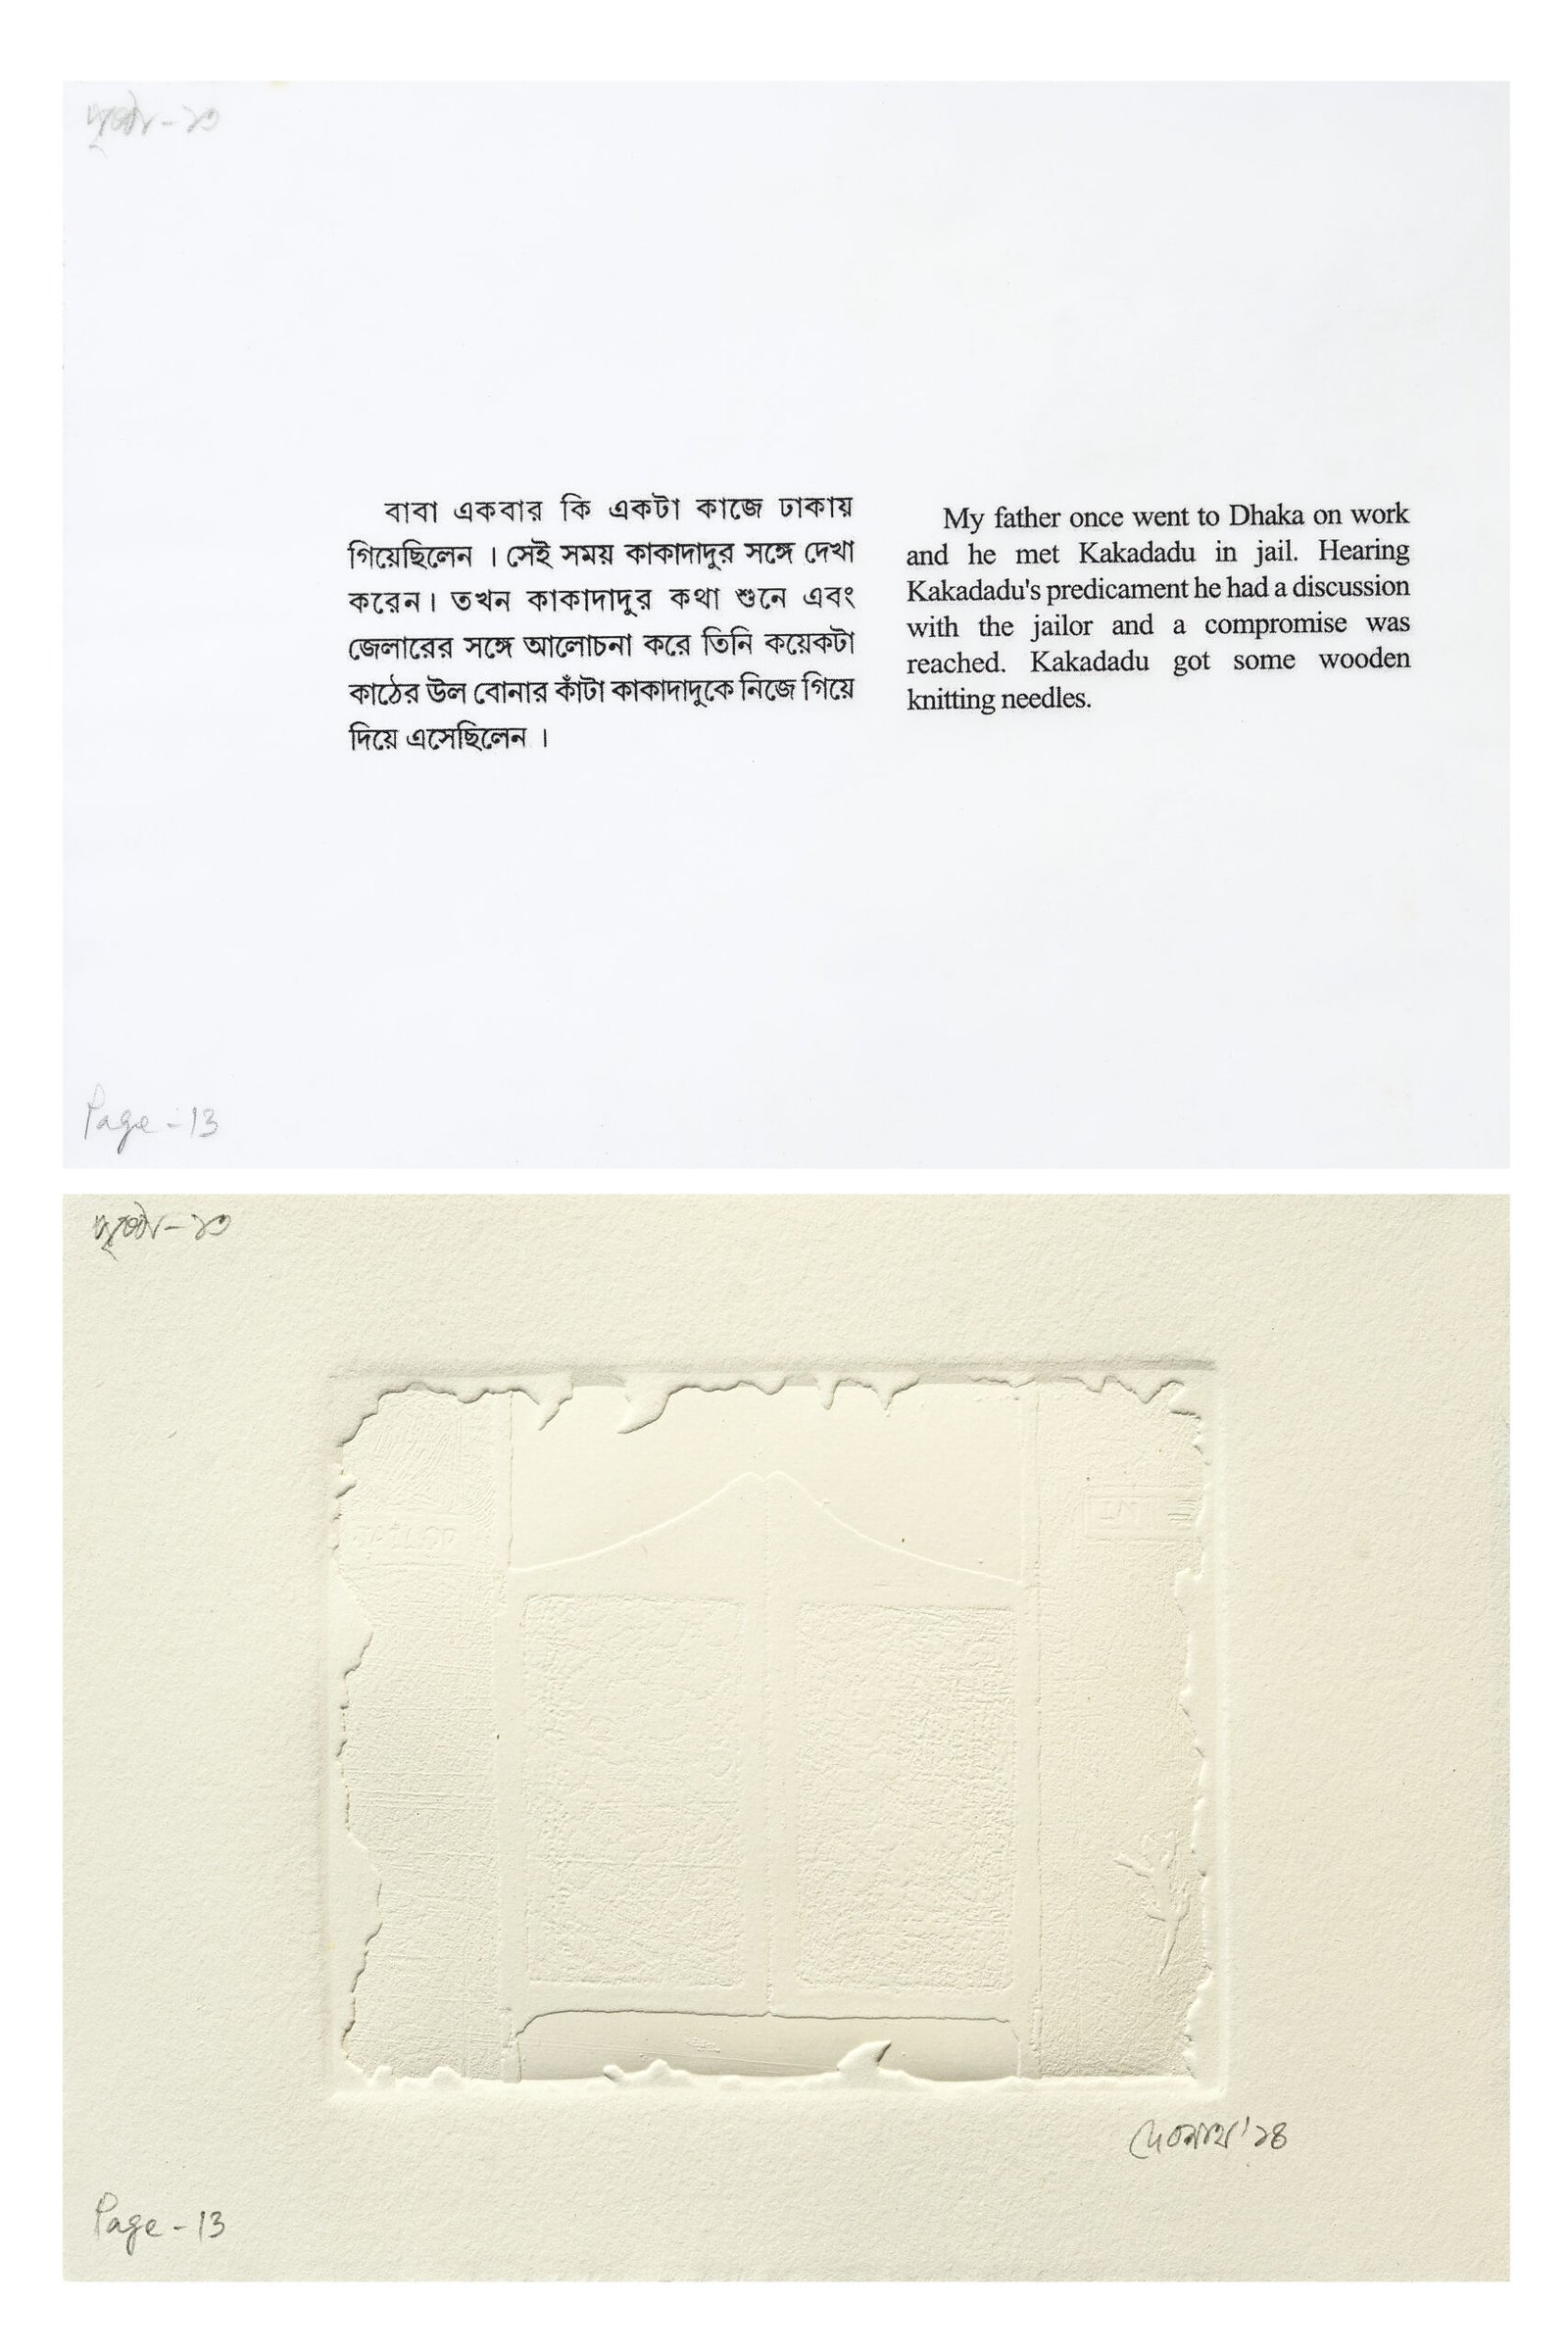 পৃষ্ঠা - ১৩
বাবা একবার কি একটা কাজে ঢাকায়
গিয়েছিলেন । সেই সময় কাকাদাদুর সঙ্গে দেখা
করেন। তখন কাকাদাদুর কথা শুনে এবং
জেলারের সঙ্গে আলোচনা করে তিনি কয়েকটা
কাঠের উল বোনার কাঁটা কাকাদাদুকে নিজে গিয়ে
দিয়ে এসেছিলেন ।
My father once went to Dhaka on work
and he met Kakadadu in jail. Hearing
Kakadadu's predicament he had a discussion
with the jailor and a compromise was
reached. Kakadadu got some wooden
knitting needles.
Page - 13
পৃষ্ঠা - ১৩
দেবনাথ '১৪
Page - 13